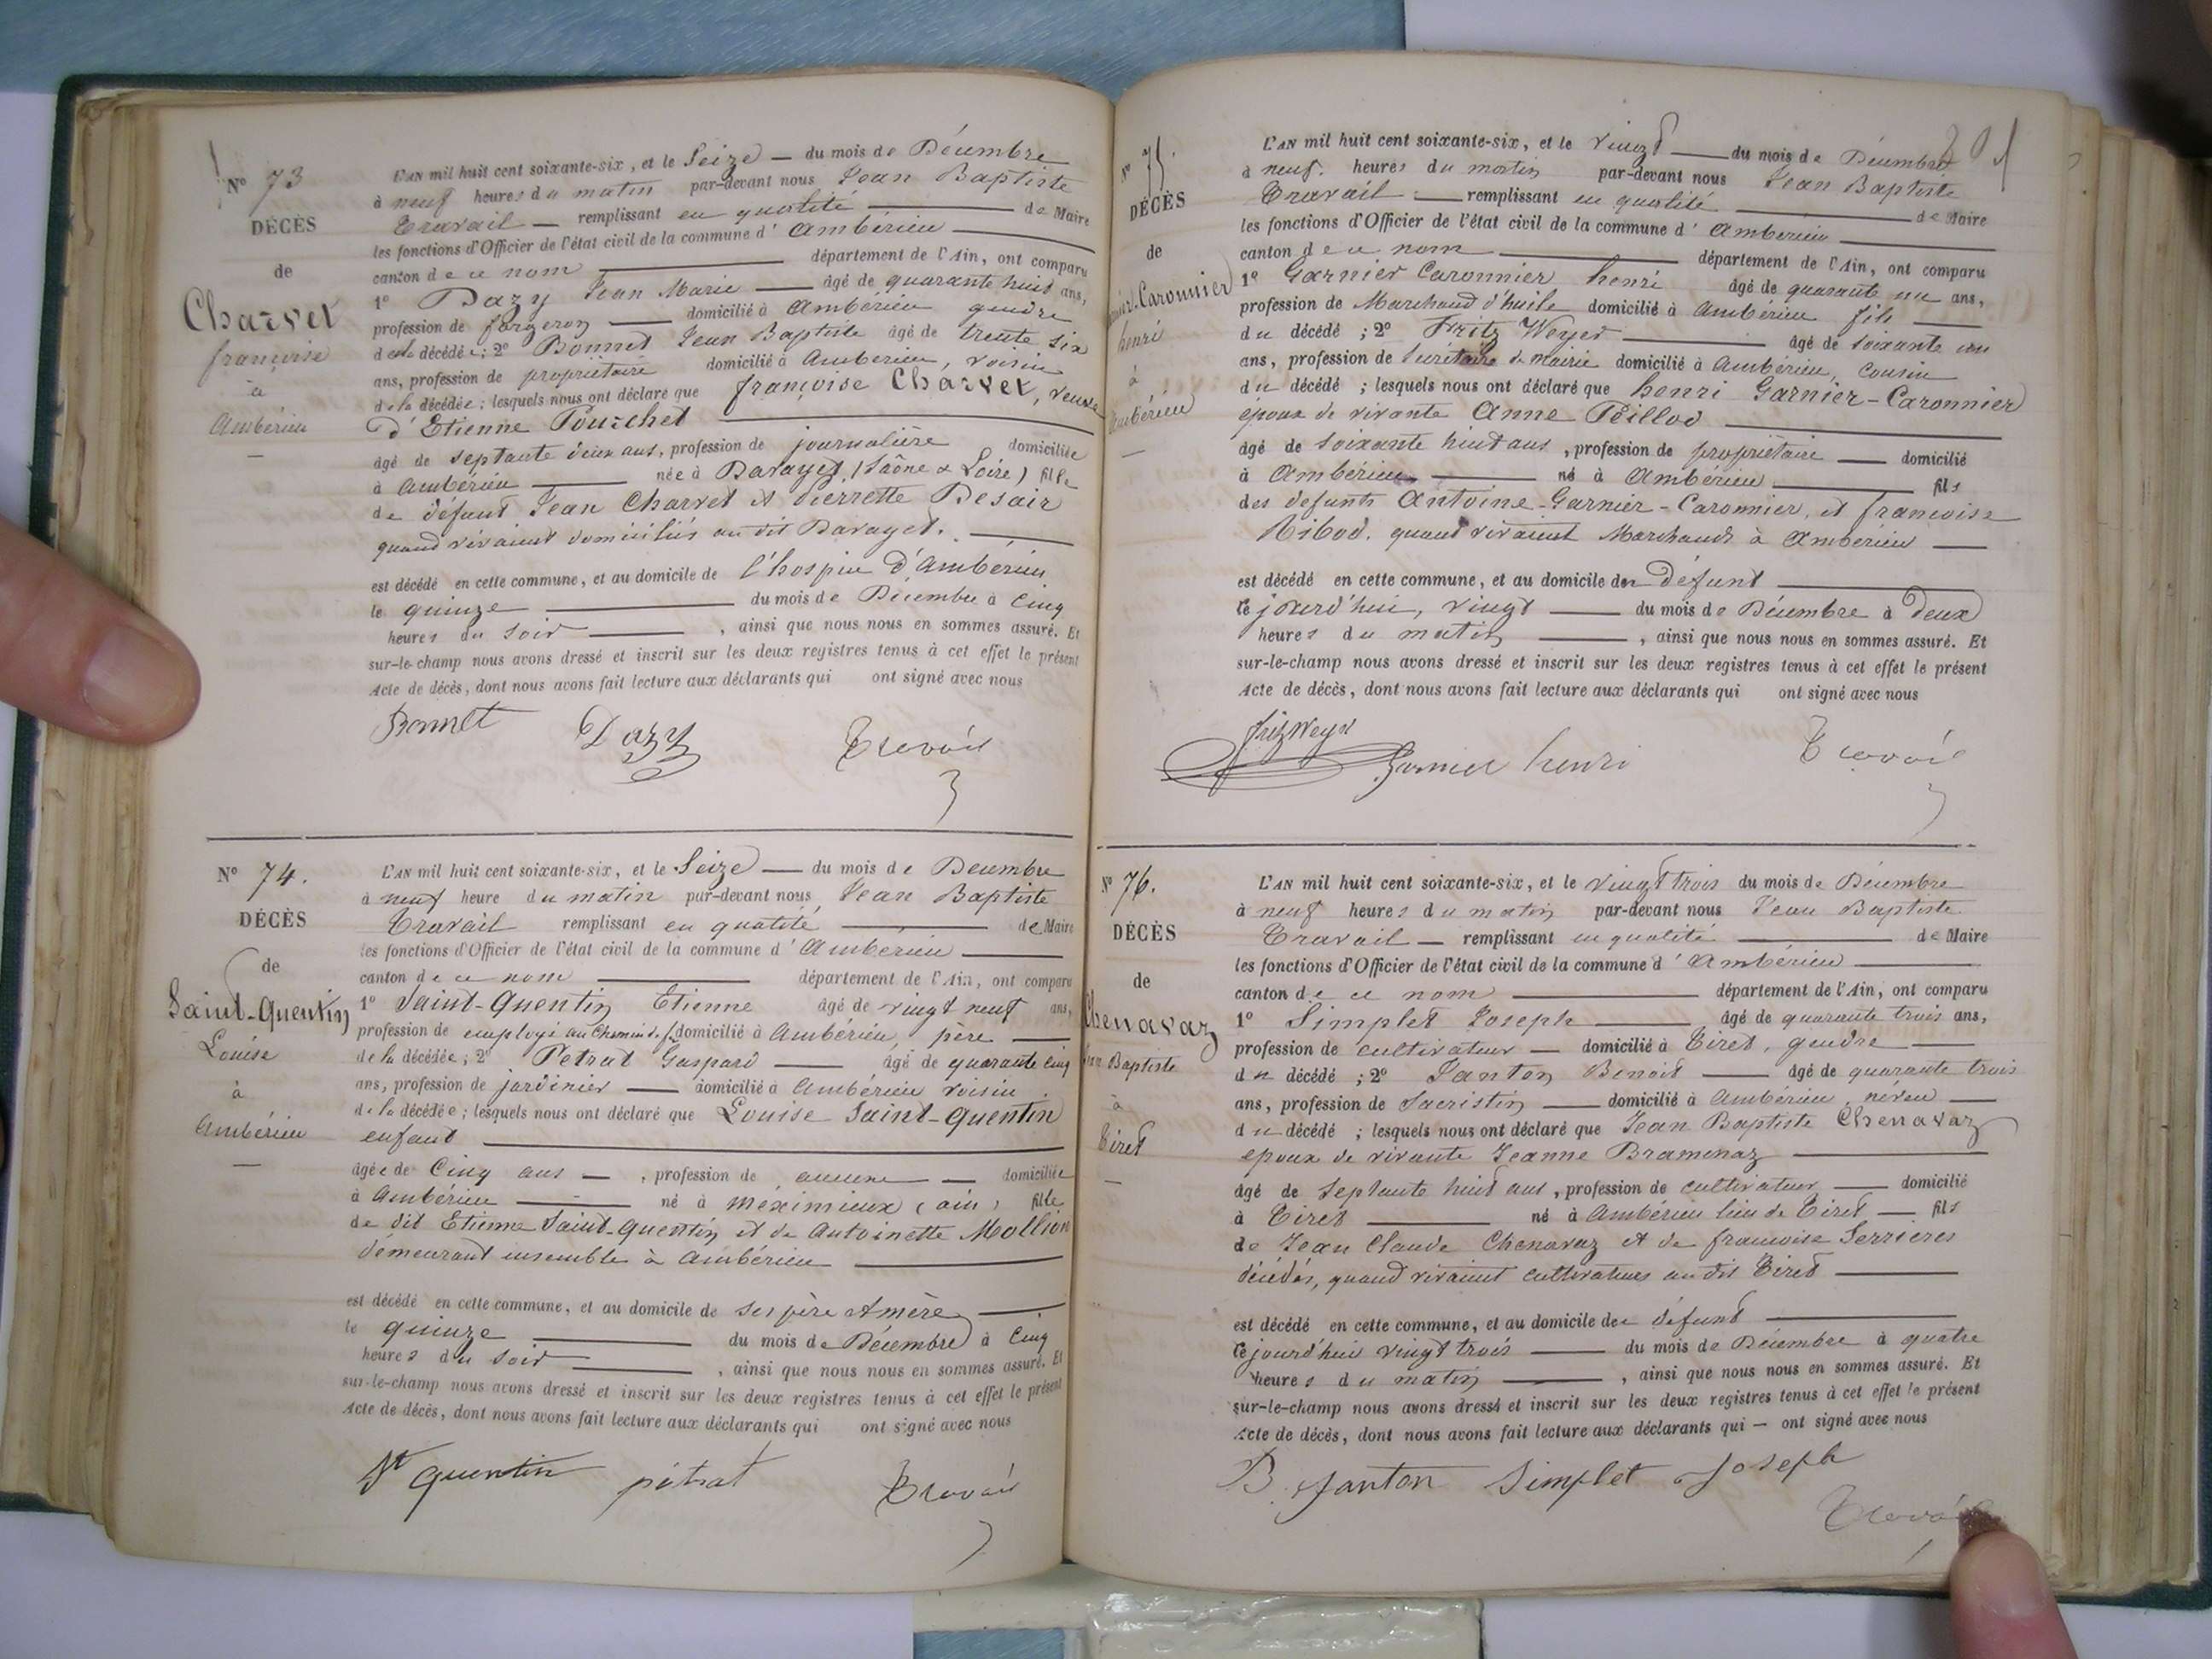 N° 73
DÉCÈS
de
Charvet
françoise
à
Ambérieu
L'AN mil huit cent soixante-six, et le Seize — du mois de Décembre
à neuf heures du matin par-devant nous Jean Baptiste
Travail — remplissant en qualité — de Maire
les fonctions d'Officier de l'état civil de la commune d'Ambérieu —
canton de ce nom — département de l'Ain, ont comparu
1° Dazy Jean Marie — âgé de quarante huit ans,
profession de forgeron — domicilié à Ambérieu gendre
de la décédée; 2° Bonnet Jean Baptiste âgé de trente six
ans, profession de propriétaire domicilié à Ambérieu, voisin
de la décédée; lesquels nous ont déclaré que françoise Charvet, veuve
d'Etienne Pourchet —
âgé de septante deux ans, profession de journalière domiciliée
à Ambérieu — née à (Saône & Loire) fille
de défunt Jean Charvet et Pierrette Desair
quand vivaient domiciliés au dit —
est décédé en cette commune, et au domicile de l'hospice d'Ambérieu
le quinze — du mois de Décembre à cinq
heures du soir —, ainsi que nous nous en sommes assuré. Et
sur-le-champ nous avons dressé et inscrit sur les deux registres tenus à cet effet le présent
Acte de décès, dont nous avons fait lecture aux déclarants qui ont signé avec nous
Bonnet Dazy Travail
N° 74.
DÉCÈS
de
Saint-Quentin
Louise
à
Ambérieu
—
L'AN mil huit cent soixante-six, et le Seize — du mois de Décembre
à neuf heure du matin par-devant nous Jean Baptiste
Travail remplissant en qualité — de Maire
les fonctions d'Officier de l'état civil de la commune d'Ambérieu —
canton de ce nom — département de l'Ain, ont comparu
1° Saint-Quentin Etienne âgé de vingt neuf ans,
profession de employé au Chemin de f. domicilié à Ambérieu, père —
de la décédée; 2° Petrat Gaspard — âgé de quarante cinq
ans, profession de jardinier — domicilié à Ambérieu voisin
de la décédée; lesquels nous ont déclaré que Louise Saint-Quentin
enfant —
âgée de Cinq ans —, profession de aucune — domiciliée
à Ambérieu — né à Meximieux (ain) fille
de dit Etienne Saint-Quentin et de Antoinette Mollion
demeurant ensemble à Ambérieu —
est décédé en cette commune, et au domicile de ses père et mère —
le quinze — du mois de Décembre à Cinq
heures du soir —, ainsi que nous nous en sommes assuré. Et
sur-le-champ nous avons dressé et inscrit sur les deux registres tenus à cet effet le présent
Acte de décès, dont nous avons fait lecture aux déclarants qui ont signé avec nous
St quentin pétrat Travail
N° 75.
DÉCÈS
de
Garnier-Caronnier
henri
à
Ambérieu
—
L'AN mil huit cent soixante-six, et le vingt — du mois de Décembre
à neuf. heures du matin par-devant nous Jean Baptiste
Travail — remplissant en qualité — de Maire
les fonctions d'Officier de l'état civil de la commune d'Ambérieu —
canton de ce nom — département de l'Ain, ont comparu
1° Garnier Caronnier henri âgé de quarante un ans,
profession de Marchand d'huile domicilié à Ambérieu fils —
du décédé; 2° Fritz Weyer — âgé de soixante un
ans, profession de Secrétaire de mairie domicilié à Ambérieu, cousin
du décédé; lesquels nous ont déclaré que henri Garnier-Caronnier
époux de vivante Anne Peillod —
âgé de soixante huit ans, profession de propriétaire — domicilié
à Ambérieu — né à Ambérieu — fils
des défunts Antoine-Garnier-Caronnier, et françoise
Ribod. quand vivaient Marchands à Ambérieu —
est décédé en cette commune, et au domicile du Défunt —
le jourd'hui, vingt — du mois de Décembre à Deux
heures du matin —, ainsi que nous nous en sommes assuré. Et
sur-le-champ nous avons dressé et inscrit sur les deux registres tenus à cet effet le présent
Acte de décès, dont nous avons fait lecture aux déclarants qui ont signé avec nous
fritz Weyer Garnier henri Travail
N° 76.
DÉCÈS
de
Chenavaz
Jean Baptiste
à
Tiret
—
L'AN mil huit cent soixante-six, et le vingt trois du mois de Décembre
à neuf heures du matin par-devant nous Jean Baptiste
Travail — remplissant en qualité — de Maire
les fonctions d'Officier de l'état civil de la commune d'Ambérieu —
canton de ce nom — département de l'Ain, ont comparu
1° Simplet Joseph — âgé de quarante trois ans,
profession de cultivateur — domicilié à Tiret, gendre —
du décédé; 2° Janton Benoit — âgé de quarante trois
ans, profession de Sacristin — domicilié à Ambérieu, néveu —
du décédé; lesquels nous ont déclaré que Jean Baptiste Chenavaz
époux de vivante Jeanne Bramenaz —
âgé de Septante huit ans, profession de cultivateur — domicilié
à Tiret — né à Ambérieu lieu de Tiret — fils
de Jean Claude Chenavaz et de francoise Serrieres
décédés, quand vivaient cultivateurs au dit Tiret —
est décédé en cette commune, et au domicile de défunt —
le jourd'hui vingt trois — du mois de Décembre à quatre
heures du matin —, ainsi que nous nous en sommes assuré. Et
sur-le-champ nous avons dressé et inscrit sur les deux registres tenus à cet effet le présent
Acte de décès, dont nous avons fait lecture aux déclarants qui — ont signé avec nous
B. Janton Simplet Joseph
Travail